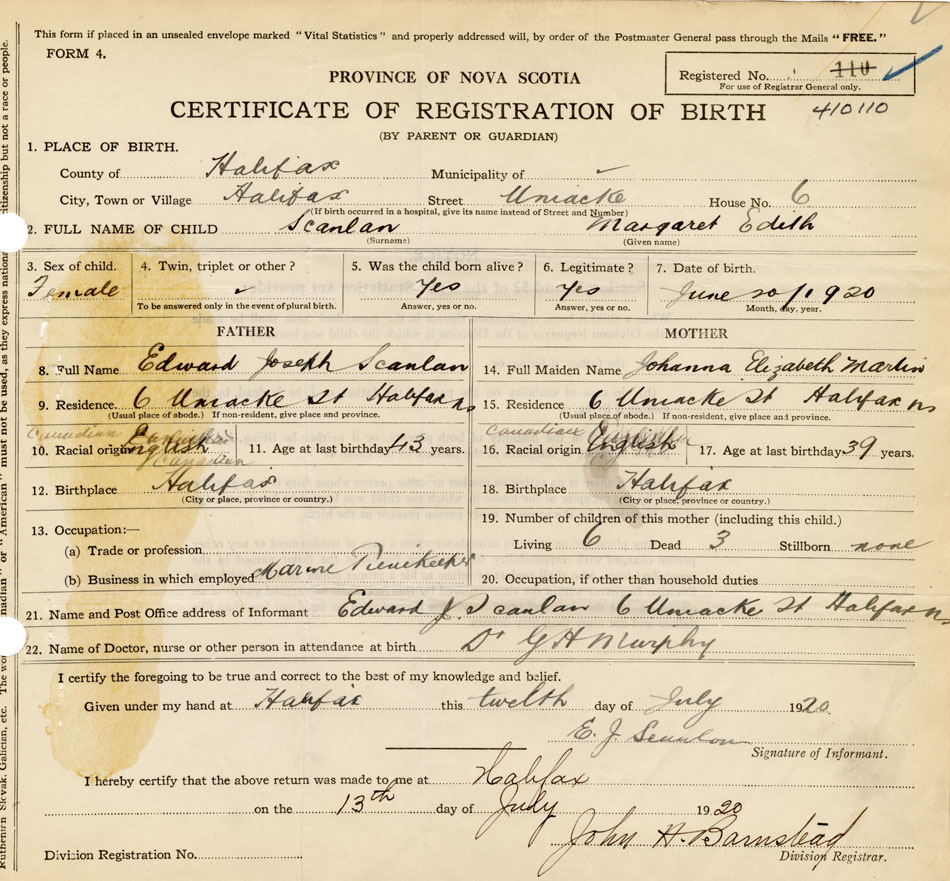 This form if placed in an unsealed envelope marked "Vital Statistics" and properly addressed will, by order of the Postmaster General pass through the Mails "FREE."
FORM 4.
Registered No. 110
For use of Registrar General only.
410110
PROVINCE OF NOVA SCOTIA
CERTIFICATE OF REGISTRATION OF BIRTH
(BY PARENT OR GUARDIAN)
1. PLACE OF BIRTH.
County of Halifax Municipality of
City, Town or Village Halifax Street Uniacke House No. 6
(If birth occurred in a hospital, give its name instead of Street and Number)
2. FULL NAME OF CHILD Scanlan Margaret Edith
(Surname) (Given name)
3. Sex of child. 4. Twin, triplet or other? 5. Was the child born alive? 6. Legitimate? 7. Date of birth.
Female Yes Yes June 20/1920
To be answered only in the event of plural birth. Answer, yes or no. Answer, yes or no. Month, day, year.
FATHER MOTHER
8. Full Name Edward Joseph Scanlan 14. Full Maiden Name Johanna Elizabeth Martin
9. Residence. 6 Uniacke St Halifax ns 15. Residence 6 Uniacke St Halifax ns
(Usual place of abode.) If non-resident, give place and province. (Usual place of abode.) If non-resident, give place and province.
Canadian Canadian
10. Racial origin English 11. Age at last birthday 43 years. 16. Racial origin English 17. Age at last birthday 39 years.
Canadian
12. Birthplace Halifax 18. Birthplace Halifax
(City or place, province or country.) (City or place, province or country.)
13. Occupation:— 19. Number of children of this mother (including this child.)
(a) Trade or profession Living 6 Dead 3 Stillborn none
(b) Business in which employed Marine 20. Occupation, if other than household duties
21. Name and Post Office address of Informant Edward J. Scanlan 6 Uniacke St Halifax ns
22. Name of Doctor, nurse or other person in attendance at birth Dr G H Murphy
I certify the foregoing to be true and correct to the best of my knowledge and belief.
Given under my hand at Halifax this twelth day of July 1920
E. J. Scanlan
Signature of Informant.
I hereby certify that the above return was made to me at Halifax
on the 13th day of July 1920
John H. Barnstead
Division Registration No. Division Registrar.